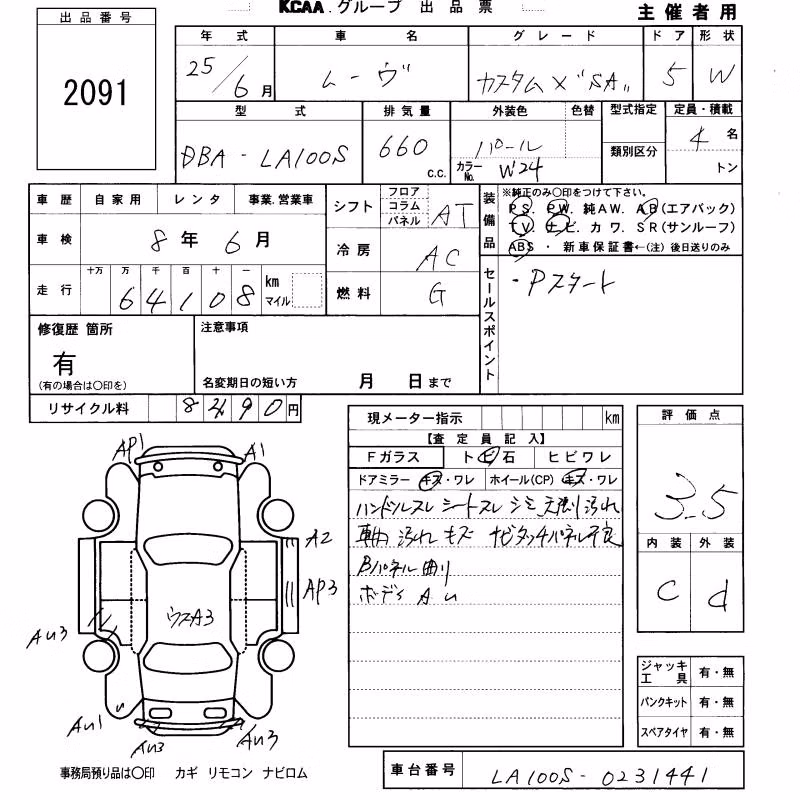 出品番号
2091
KCAA.グループ 出品票
主催者用
年式 車名 グレード ドア 形状
25/6月 ムーヴ カスタムX"SA" 5 W
型式 排気量 外装色 色替 型式指定 定員・積載
DBA-LA100S 660 c.c. パール カラーNo. W24 類別区分 4名
トン
車歴 自家用 レンタ 事業.営業車
車検 8年 6月
走行 十万 万 千 百 十 一
64108 km マイル
シフト フロア コラム パネル AT
冷房 AC
燃料 G
装備品
※純正のみ〇印をつけて下さい。
PS. PW. 純AW. AB(エアバック)
TV. ナビ. カワ. SR(サンルーフ)
ABS ・ 新車保証書←(注)後日送りのみ
セールスポイント
・Pスタート
修復歴 箇所
有
(有の場合は〇印を)
注意事項
名変期日の短い方 月 日まで
リサイクル料 8490円
現メーター指示 km
【査定員記入】
Fガラス トビ石 ヒビワレ
ドアミラー キズ・ワレ ホイール(CP) キズ・ワレ
ハンドルスレ シートスレ シミ 天張り汚れ
車内 汚れ キズ ナビタッチパネル不良
Bパネル曲り
ボディAU
評価点
3.5
内装 外装
C d
AP1
A1
A2
AP3
ウスA3
AU3
AU1
AU3
AU3
ジャッキ工具 有・無
パンクキット 有・無
スペアタイヤ 有・無
事務局預り品は〇印 カギ リモコン ナビロム
車台番号 LA100S-0231441